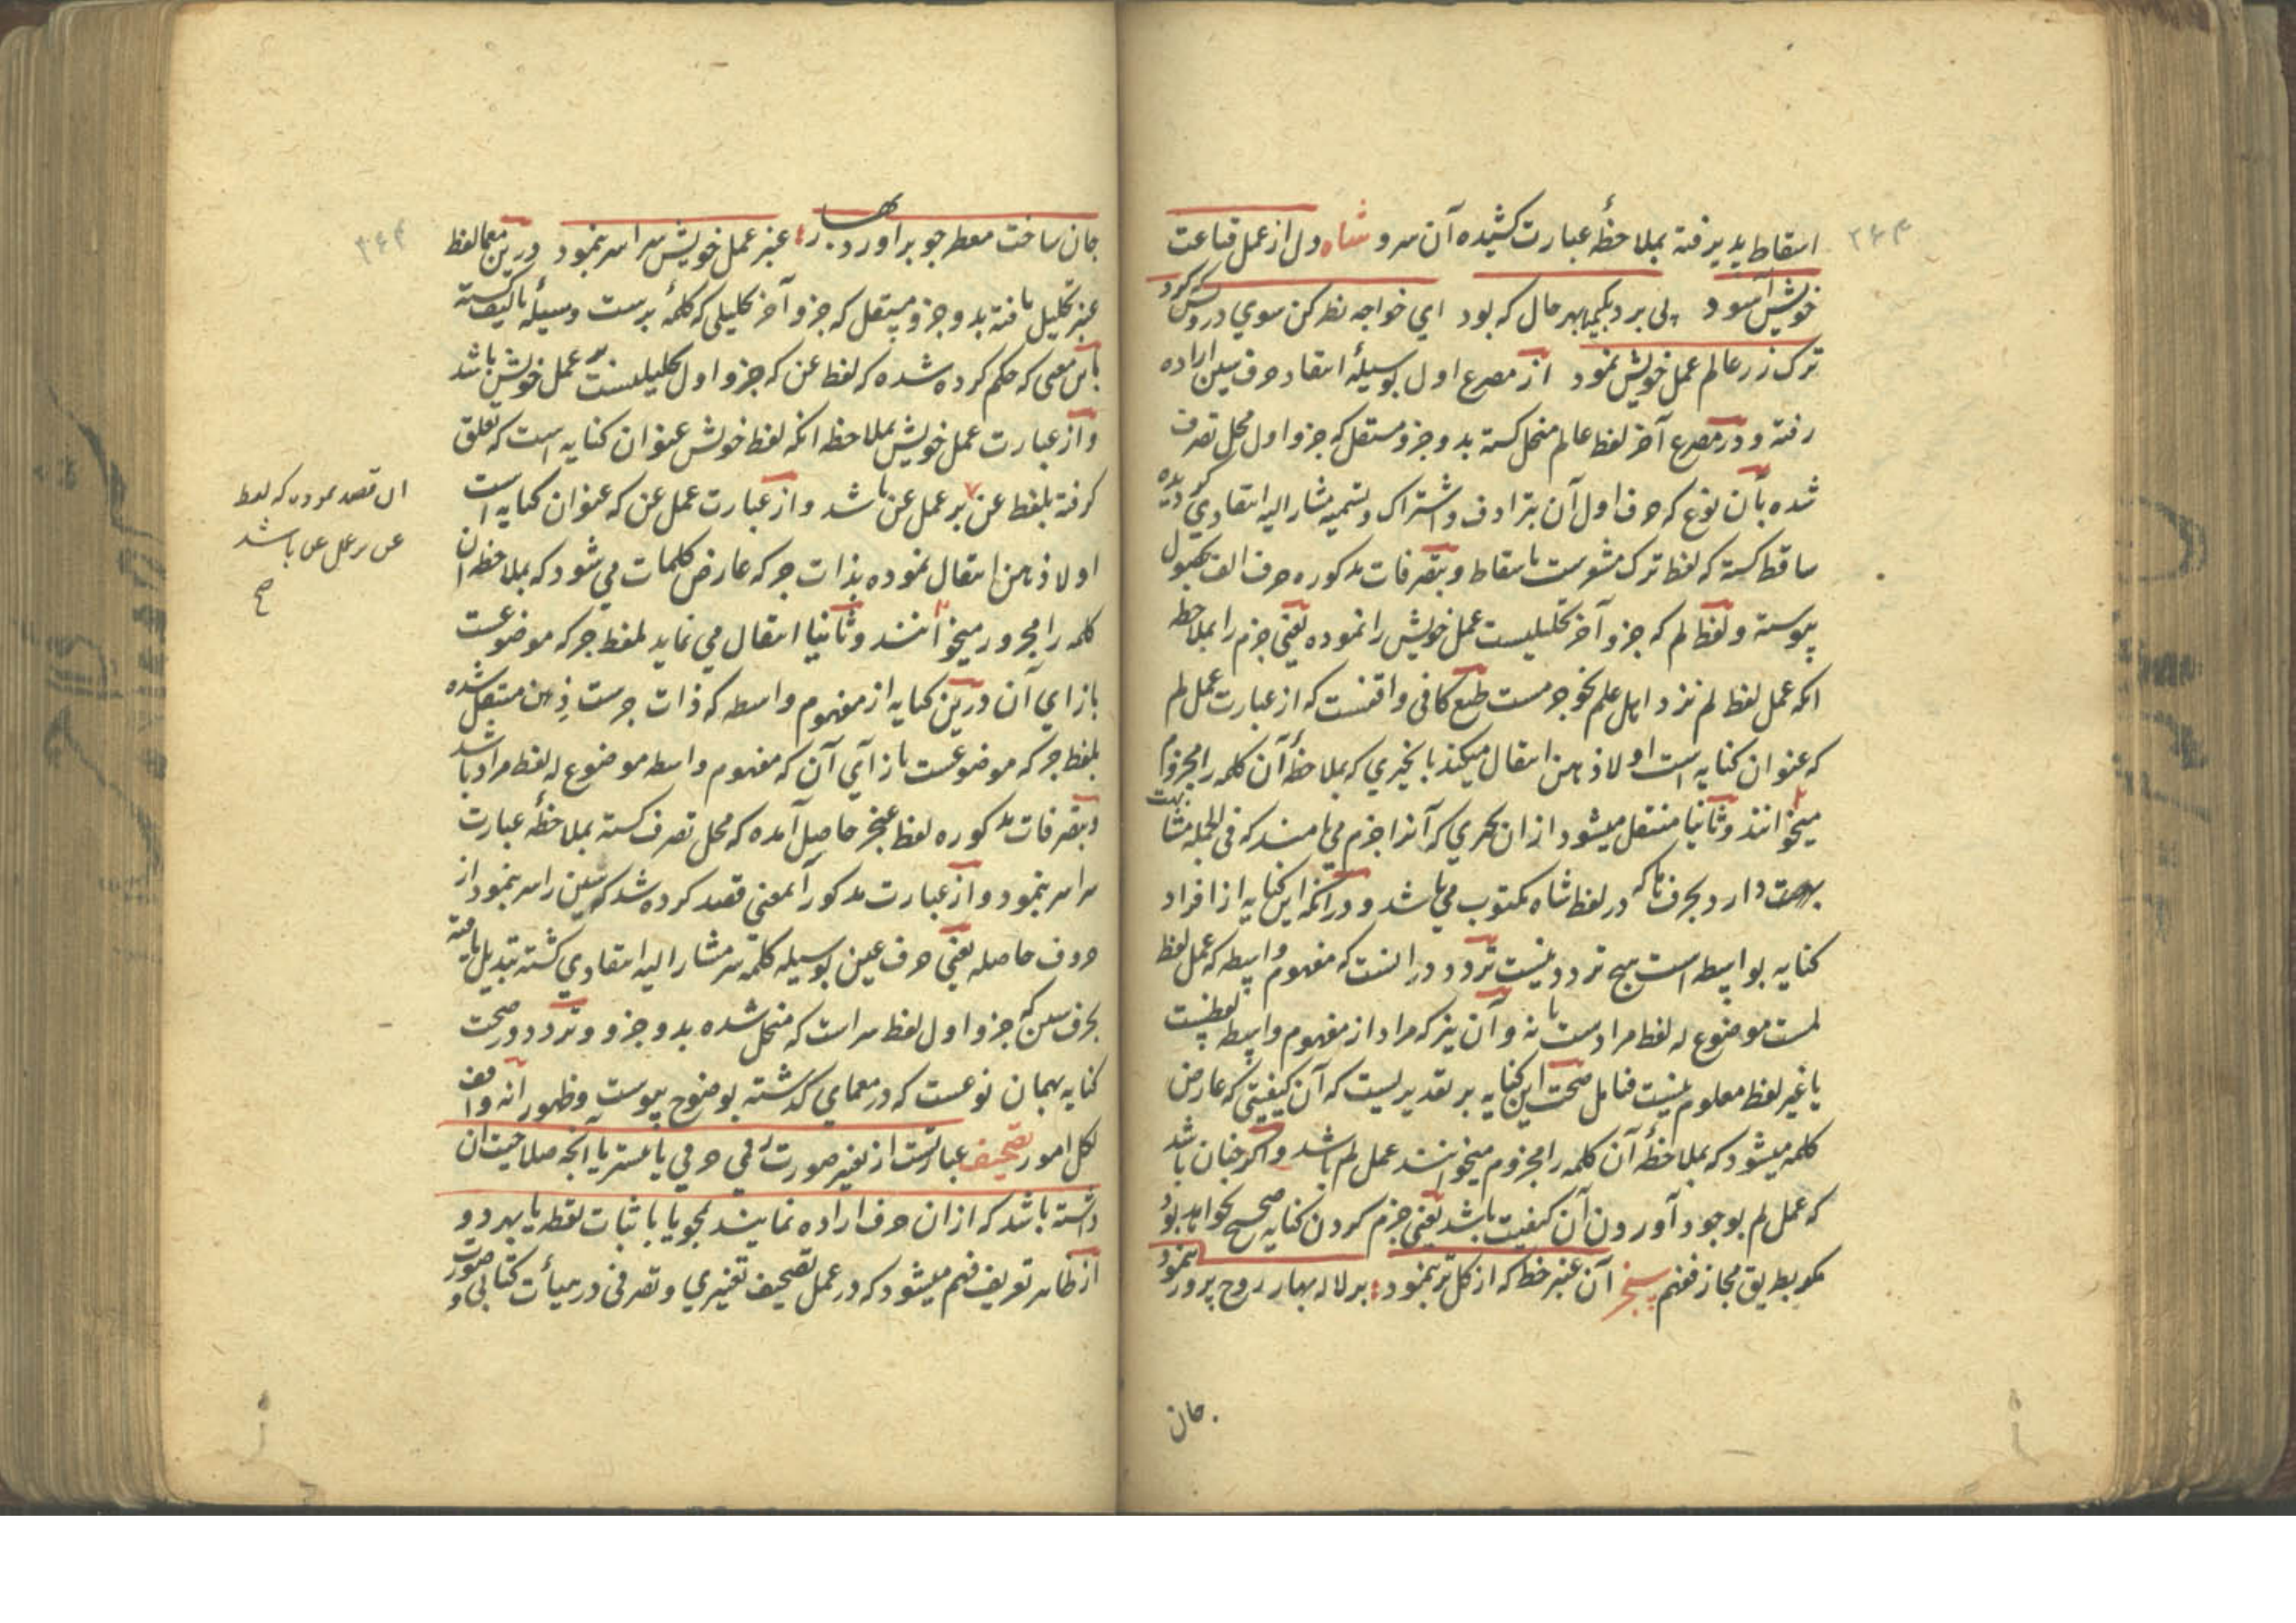 ۲۶۳
اسقاط پذیرفته بملاحظهٔ عبارت کشیده آن سرو شاه دل از عمل قناعت
خویش آسود پی برد بکیمیا بهر حال که بود ای خواجه نظر کن سوی درویش که کرد
ترک زر عالم عمل خویش نمود از مصرع اول بوسیلهٔ انتقاد حرف سین اراده
رفته و در مصرع آخر لفظ عالم منحل کشته بدو جزو مستقل که جزو اول محل تصرف
شده بآن نوع که حرف اول آن بترادف و اشتراک و تسمیه مشار الیه انتقادی کردیده
ساقط کشته که لفظ ترک مشعرست باسقاط و بتصرفات مذکوره حرف الف بحصول
پیوسته و لفظ لم که جزو آخر تحلیلیست عمل خویش را نموده یعنی جزم را بملاحظه
انکه عمل لفظ لم نزد اهل علم نحو جزمست طبع کافی واقفست که از عبارت عمل لم
که عنوان کنایه است اولا ذهن انتقال میکند بانچیزی که بملاحظهٔ آن کلمه را مجزوم
میخوانند و ثانیا منتقل میشود ازان بحرفی که آنرا جزم می نامند که فی الجمله مشابهت
بهت دارد بحرف ها که در لفظ شاه مکتوب می باشد و در آنکه این کنایه از افراد
کنایه بواسطه است هیچ تردد نیست تردد در انست که مفهوم واسطه که عمل لفظ
لمست موضوع له لفظ مرادست یا نه و آن نیز که مراد از مفهوم واسطه لفظیست
یا غیر لفظ معلوم نیست فتامل صحت این کنایه بر تقدیریست که آن کیفیتی که عارض
کلمه میشود که بملاحظهٔ آن کلمه را مجزوم میخوانند عمل لم باشد و اکر چنان باشد
که عمل لم بوجود آوردن آن کیفیت باشد یعنی جزم کردن کنایه صحیح نخواهد بود
مکر بطریق مجاز ففهم سنجر آن عنبر خط که از کل تر بنمود : بر لاله بهار روح پرور بنمود
جان
۲۶۴
جان ساخت معطر چو براورد بهار : عنبر عمل خویش سراسر بنمود درین معما لفظ
عنبر تحلیل یافته بدو جزو مستقل که جزو آخر تحلیلی که کلمهٔ برست وسیلهٔ تالیف کشته
باین معنی که حکم کرده شده که لفظ عن که جزو اول تحلیلیست بر عمل خویش باشد
و از عبارت عمل خویش بملاحظه انکه لفظ خویش عنوان کنایه است که تعلق
کرفته بلفظ عن بر عمل عن باشد و از عبارت عمل عن که عنوان کنایه است
اولا ذهن انتقال نموده بذات جر که عارض کلمات می شود که بملاحظه ان
کلمه را مجرور میخوانند و ثانیا انتقال می نماید بلفظ جر که موضوعست
بازای آن درین کنایه از مفهوم واسطه که ذات جرست ذهن منتقل شده
بلفظ جر که موضوعست بازآی آن که مفهوم واسطه موضوع له لفظ مراد باشد
و بتصرفات مذکوره لفظ عنجر حاصل آمده که محل تصرف کشته بملاحظهٔ عبارت
سراسر بنمود و از عبارت مذکور آنمعنی قصد کرده شد که سین را سر بنمود از
حروف حاصله یعنی حرف عین بوسیله کلمهٔ سر مشار الیه انتقادی کشته تبدیل یافته
بحرف سین که جزو اول لفظ سراست که منحل شده بدو جزو و تردد در صحت
کنایه بهمان نوعست که در معمای کذشته بوضوح پیوست و ظهور انه واقف
لکل امور تصحیف عبارتست از تغییر صورت رقمی حرفی یا بیشتر یا آنچه صلاحیت ان
داشته باشد که ازان حرف اراده نمایند بمحو یا باثبات نقطه یا بهر دو
از ظاهر تعریف فهم میشود که در عمل تصحیف تغییری و تصرفی در هیأت کتابی و صورت
ان قصد نموده که لفظ
عن بر عمل عن باشد
صح